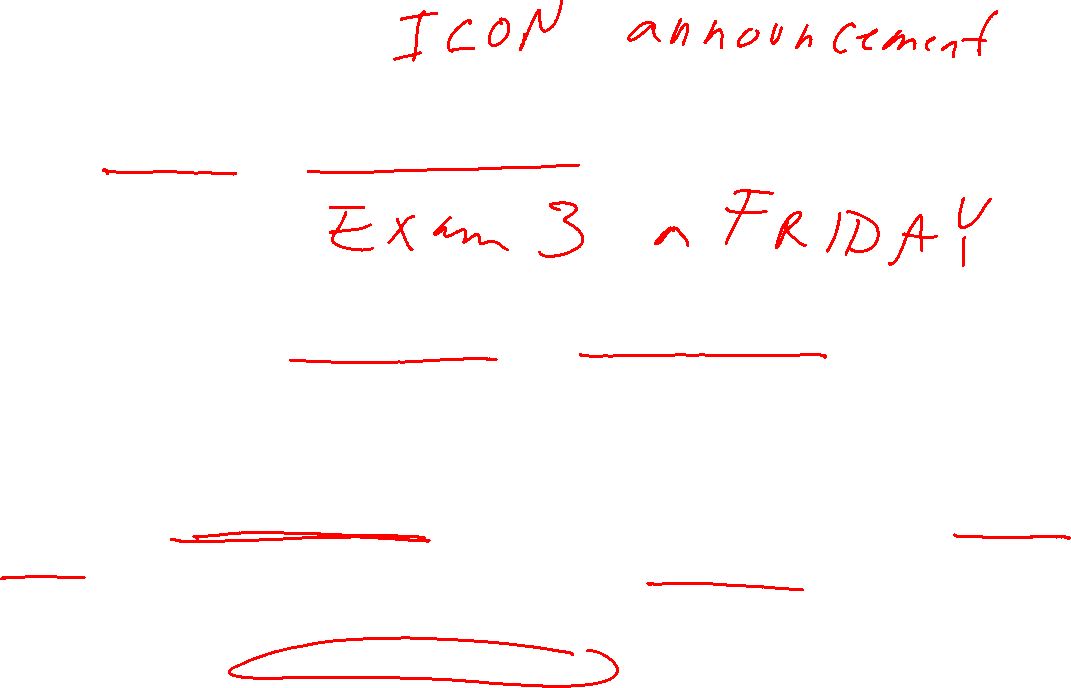 ICON announcement
Exam 3 n FRIDAY